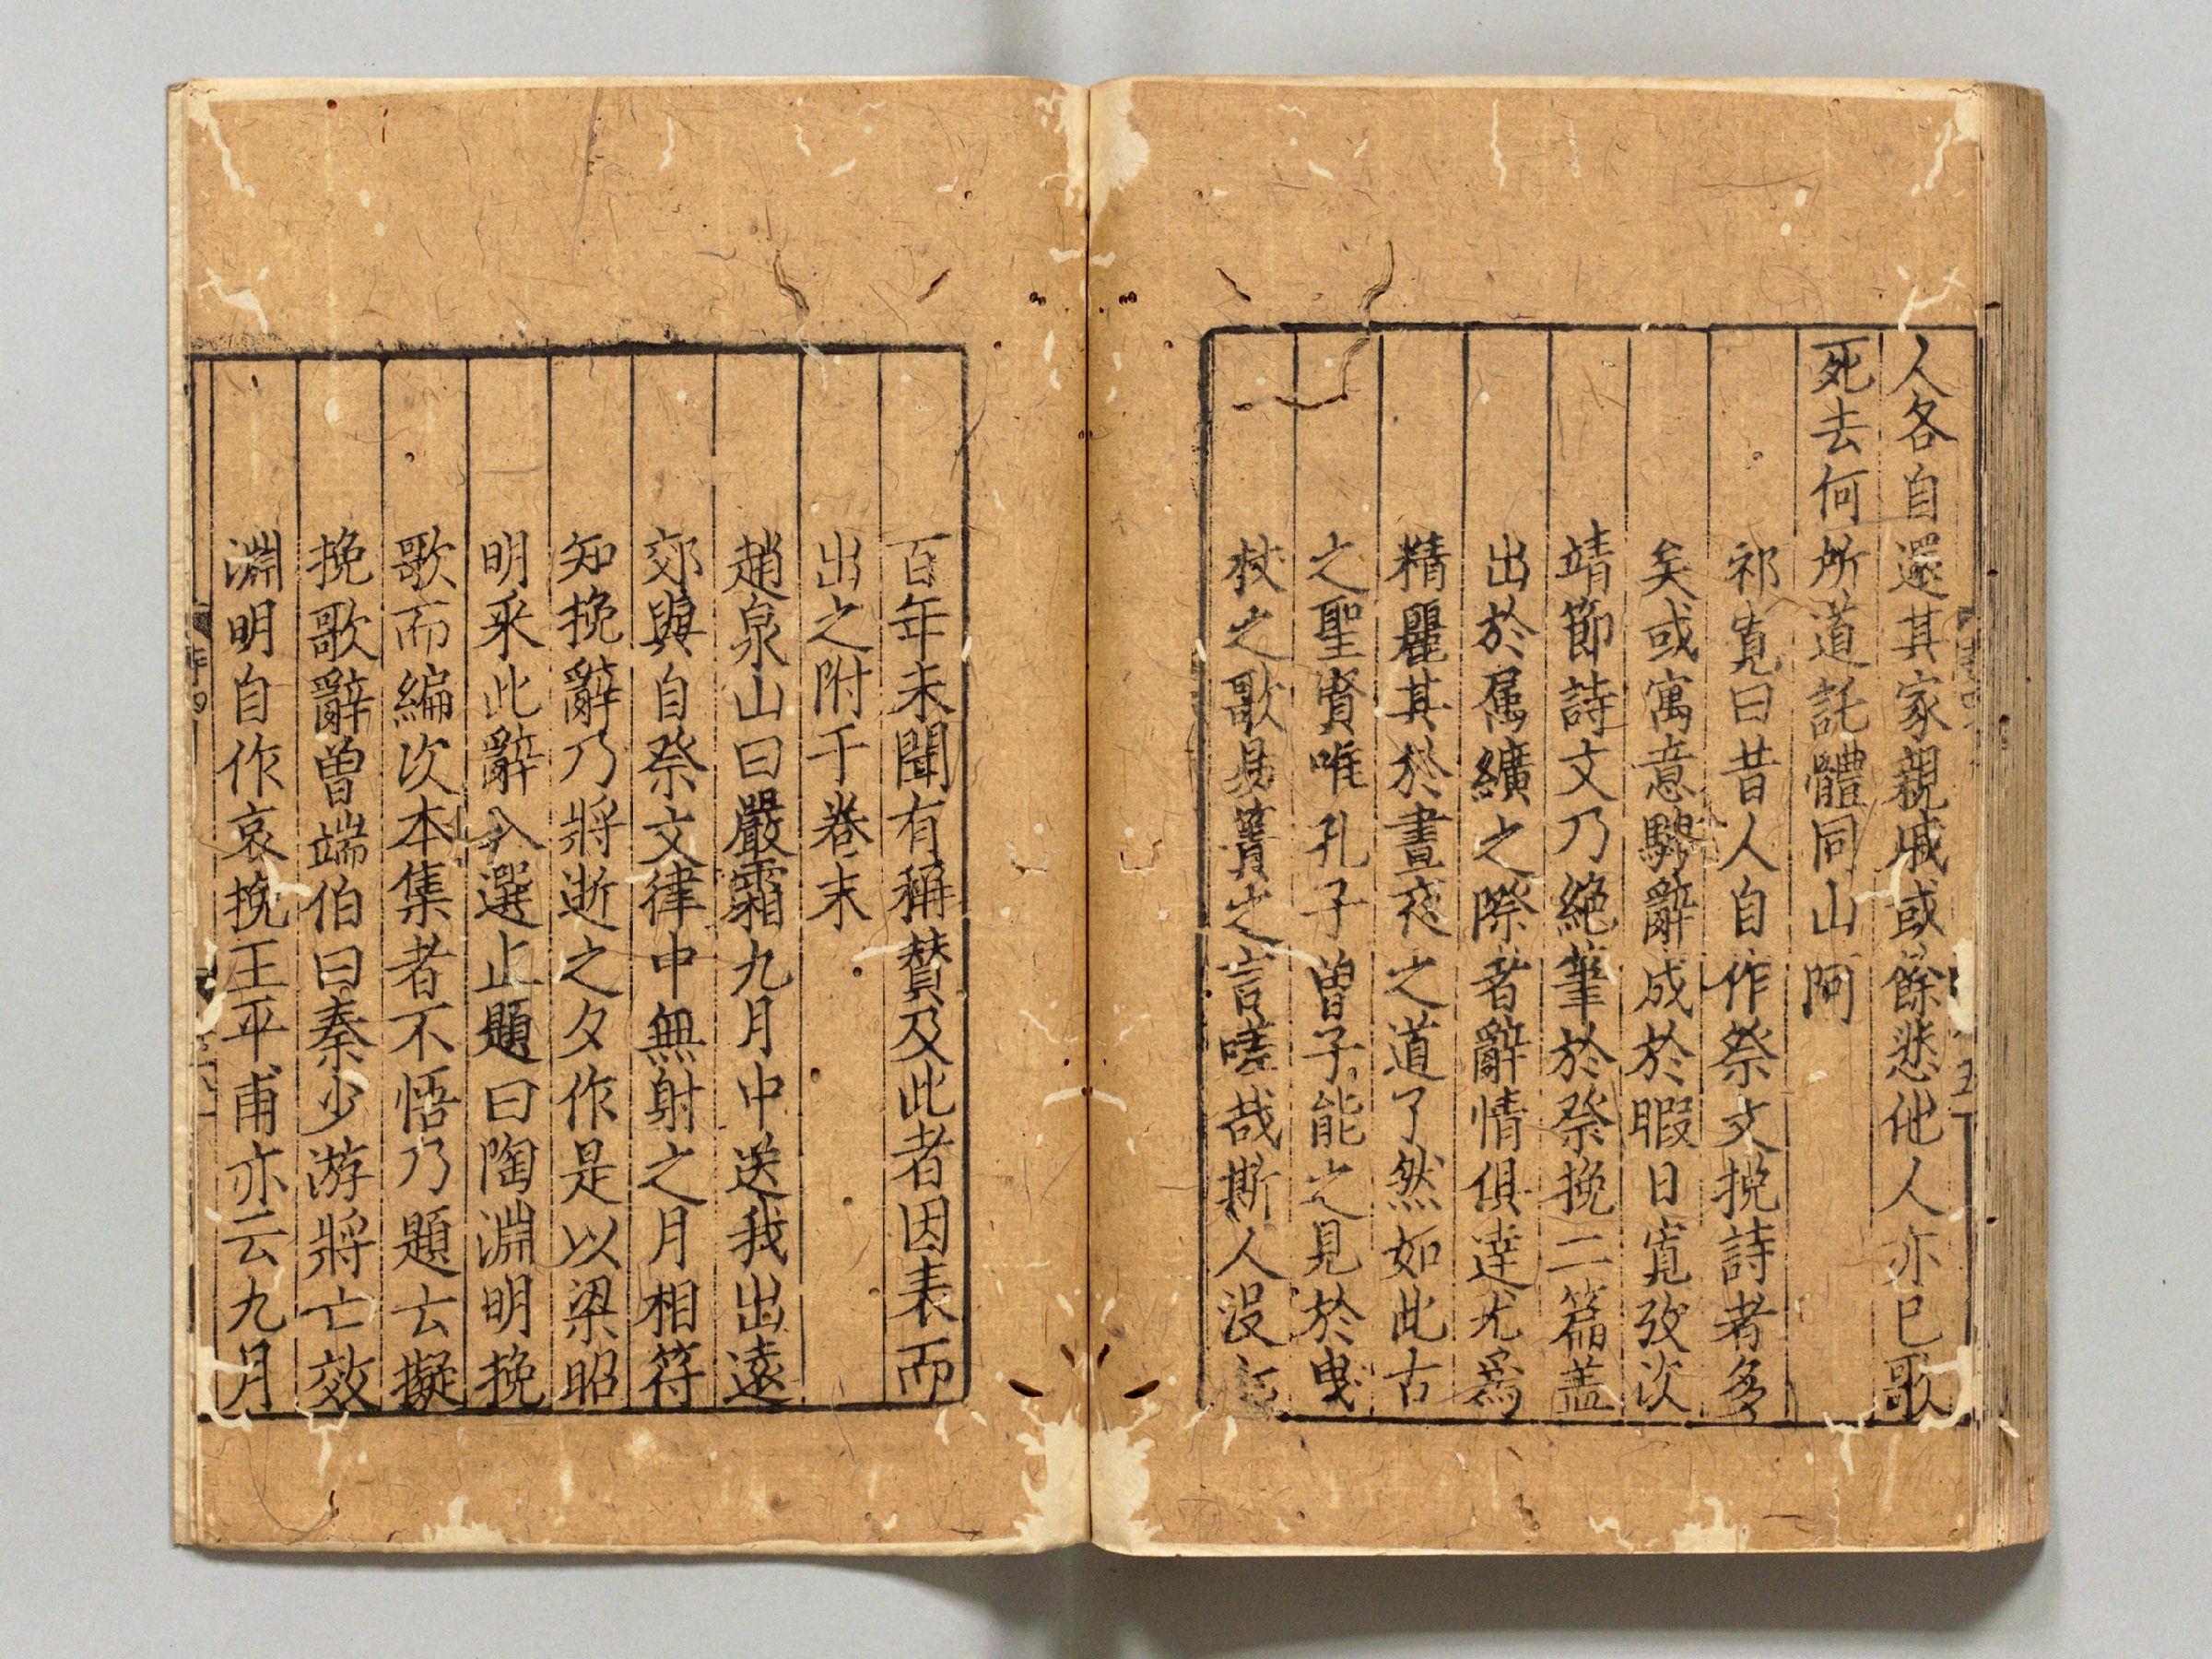 人各自還其家親戚或餘悲他人亦已歌
死去何所道託體同山阿
祁寬曰昔人自作祭文挽詩者多
矣或寓意騁辭成於暇日寬攷次
靖節詩文乃絶筆於祭挽二篇盖
出於属纊之際者辭情俱達尤爲
精麗其於晝夜之道了然如此古
之聖賢唯孔子曽子能之見於曵
杖之歌易簀之言嗟哉斯人没
百年未聞有稱賛及此者因表而
出之附于卷末
趙泉山曰嚴霜九月中送我出遠
郊與自祭文律中無射之月相符
知挽辭乃將逝之夕作是以梁昭
明采此辭入選止題曰陶淵明挽
歌而編次本集者不悟乃題云擬
挽歌辭曽端伯曰秦少游將亡效
淵明自作哀挽王平甫亦云九月